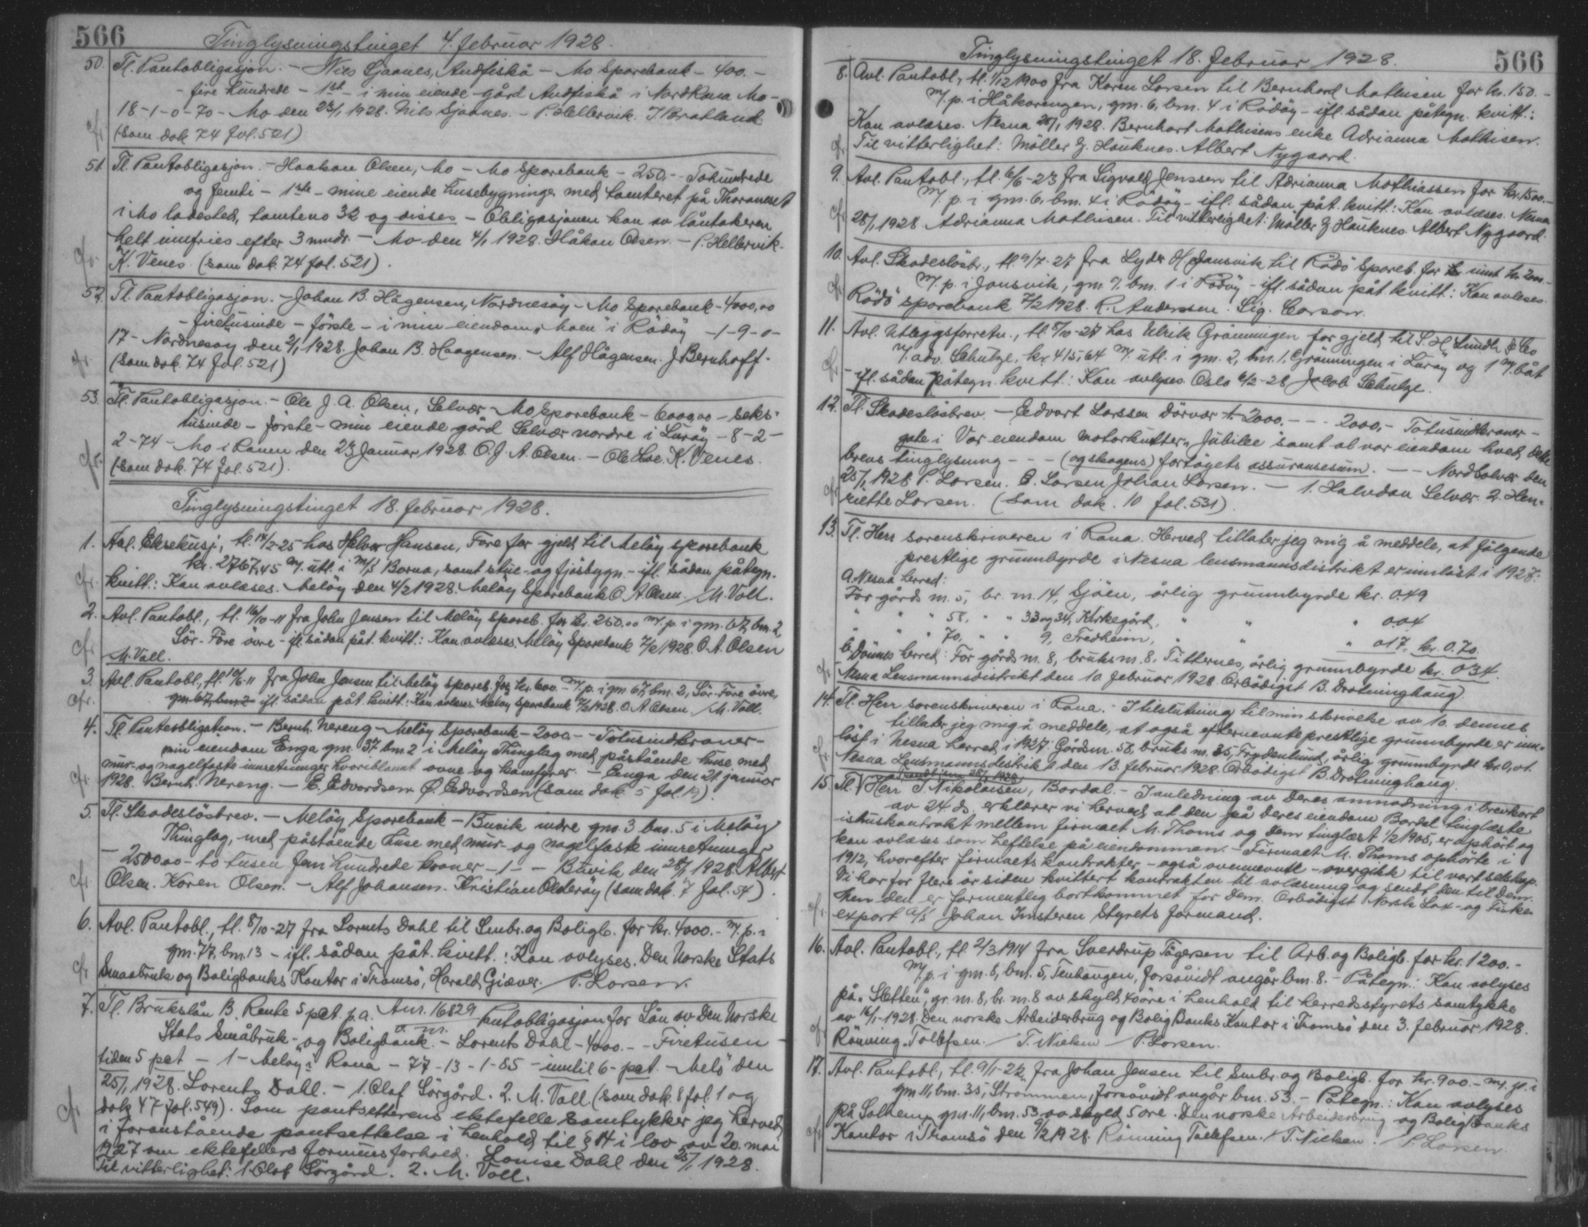 566
Tinglysningstinget 4. februar 1928.
50. Tl. Pantobligasjon. - Nils Sjaanes, Andfiskå - Mo Sparebank - 400.-
- fire hundrede - 1ste - i min eiende gård Andfiskå i Nordrana Mo -
18-1-0-70 - Mo den 23/1 1928. Nils Sjaanes. - P. Hellervik. J. Bratland
(som dok. 74 fol. 521)
51. Tl. Pantobligasjon. - Haakon Olsen, Mo - Mo Sparebank - 250.- Tohundrede
og femti - 1ste - mine eiende husebygninger med tomteret på Thoraneset
i Mo ladested, tomteno 32 og disses - Obligasjonen kan av låntakeren
helt innfries efter 3 mndr. - Mo den 4/1 1928. Håkon Olsen - P. Hellervik.
K. Venes. (som dok. 74 fol. 521).
52. Tl. Pantobligasjon. - Johan B. Hågensen, Nordnesøy - Mo Sparebank - 4000,00
- firetusinde - første - i min eiendom, i Rødøy - 1-9-0-
17 - Nordnesøy den 2/1 1928. Johan B. Haagensen. - Alf Hågensen. J. Bernhoff.
(som dok. 74 fol. 521)
53. Tl. Pantobligasjon. - Ole J. A. Olsen, Selvær - Mo Sparebank - 6000,00 - seks-
tusinde - første - min eiende gård Selvær nordre i Lurøy - 8-2-
2-74 - Mo i Ranen den 23 Januar 1928 O. J. A. Olsen. - Ole Hoe. K. Venes.
(som dok. 74 fol. 521).
Tinglysningstinget 18. februar 1928.
1. Avl. Eksekusj., tl. 14/2-25 hos Helvor Hansen, Fore for gjeld til Meløy sparebank
kr. 2767,45 m. utl. i m/s Borna, samt stue- og fjøsbygn. - ifl. sådan påtegn.
kvitt: Kan avlæses. Meløy den 4/2 1928. Meløy Sparebank O. A. Olsen. / M. Voll.
2. Avl. Pantobl., tl. 16/10-11 fra John Jensen til Meløy spareb. for kr. 250.00 m.p. i gm. 67, bm. 2,
Sør-Fore øvre - ifl. sådan påt. kvitt: Kan avlæses. Meløy Sparebank 7/2 1928 O. A. Olsen
M. Voll.
3. Avl. Pantobl., tl. 10/6-11 fra John Jensen til Meløy spareb. for kr. 600.- m.p. i gm. 67, bm. 2, Sør-Fore øvre,
gm. 67, bm. 2 ifl. sådan påt. kvitt: Kan avlæses Meløy Sparebank 7/2 1928. O. A. Olsen / M. Voll.
4. Tl. Pantobligation. - Bernt Nereng - Meløy Sparebank - 2000.- - Totusindkroner -
min eiendom Enga gm. 37 bm. 2 i Meløy Thinglag med påstående huse med
mur- og nagelfaste innretninger hvoriblandt ovne og komfyrer. - Enga den 21 januar
1928. Bernt Nereng. - E. Edvardsen. Ø. Edvardsen (som dok. 5 fol. 12).
5. Tl. Skadesløsbrev. - Meløy Sparebank - Buvik indre gm. 3 bm. 5 i Meløy
Thinglag, med påstående huse med mur- og nagelfaste innretninger
- 2500.00 - to tusen fem hundrede kroner - 1 - - Buvik den 28/1 1928 Albert
Olsen. Karen Olsen. - Alf Johansen. Kristian Olderøy (som dok. 7 fol. 54).
6. Avl. Pantobl., tl. 8/10-27 fra Lorents Dahl til Småbr. og Boligb. for kr. 4000.- m.p. i
gm. 77, bm. 13 - ifl. sådan påt. kvitt: Kan avlyses. Den Norske Stats
Smaabruks og Boligbanks Kontor i Tromsø, Harald Giæver. P. Larsen.
7. Tl. Brukslån B. Rente 5 pct. p.a. Anr. 16829 Pantobligasjon for Lån av Den Norske
Stats Småbruk- og Boligbank. - Lorents Dahl - 4000.- - Firetusen -
tiden 5 pct - 1 - Meløy i Rana - 77-13-1-85 - inntil 6 - pct. - Meløy den
25/1 1928. Lorents Dahl. - 1. Olof Sørgård. 2. M. Voll (som dok. 8 fol. 1 og
dok. 47 fol. 549). Som pantsetterens ektefelle samtykker jeg herved
i foranstående pantsettelse i henhold til § 14 i lov av 20. mai
1927 om ektefellers formuesforhold. Louise Dahl den 25/1 1928.
Til vitterlighet: 1. Olof Sørgård. 2. M. Voll.
Tinglysningstinget 18. februar 1928.
566
8. Avl. Pantobl., tl. 1/12 1900 fra Karen Larsen til Bernhard Mathisen for kr. 150.-
m.p. i Håkorengen, gm. 6, bm. 4 i Rødøy - ifl. sådan påtegn. kvitt:
Kan avlæses. Nesna 28/1 1928. Bernhart Mathisens enke Adrianna Mathisen.
Til vitterlighet: Møller G. Hauknes. Albert Nygaard.
9. Avl. Pantobl., tl. 6/6-23 fra Sigvald Jensen til Adrianna Mathiassen for kr. 1500.-
m.p. i gm. 6. bm. 4 i Rødøy - ifl. sådan påt. kvitt: Kan avlæses. Nesna
28/1 1928 Adrianna Mathisen. Til vitterlighet: Møller G Hauknes. Albert Nygaard.
10. Avl. Skadesløsbr., tl. 9/7-27 fra Lyder H. Jonsvik til Rødø Spareb. for inntil kr. 2000.-
m.p. i Jonsvik, gm. 7. bm. 1 i Rødøy - ifl. sådan påt. kvitt: Kan avlæses.
Rødø sparebank 7/2 1928. R. Andersen. Sig. Carson.
11. Avl. Utleggsforretn., tl. 8/10-27 hos Ulrik Grønningen for gjeld til S. H. Lundh & Co
v/ adv. Schulze, kr. 415,64 m. utl. i gm. 2, bm. 1, Grønningen i Lurøy og 1 m. båt
- ifl. sådan påtegn. kvitt: Kan avlyses Oslo 6/2-28 Jacob Schulze.
12. Tl. Skadesløsbrev. - Edvart Larssen Dørvær - 2000.- - - 2000,- Totusindkroner -
i Vor eiendom Motorkutter "Jubilee" samt al vor eiendom hved dette
brevs tinglysning - - (ogskogens) fortøyets assuransesum. - - Nord Solvær den
25/1 1928 P. Larsen. E. Larsen Johan Larsen. - 1. Halvdan Selvær. 2. Hen-
riette Larsen. (som dok. 10 fol. 531).
13. Tl. Herr sorenskriveren i Rana. Herved tillater jeg mig å meddele, at følgende
prestlige grunnbyrde i Nesna lensmannsdistrikt er innløst i 1927:
A. Nesna herred:
For gårds nr. 5, br. nr. 14, Sjøen, årlig grunnbyrde kr. 0.49
" " " 58, " " 33 og 34, Kirkegård, " " " 0.04
" " " 70, " " 9, Fredheim, " " " 0.17 kr. 0.70.
b. Dønnes herred: For gårds nr. 8, bruks nr. 8. Titternes, årlig grunnbyrde kr. 0.34.
Nesna Lensmannsdistrikt den 10 februar 1928 Ærbødigst B. Drotninghaug
14. Tl. Herr sorenskriveren i Rana. - I tilslutning til min skrivelse av 10. dennes
tillater jeg mig å meddele, at også efternevnte prestlige grunnbyrde er inn-
løst i Nesna herred i 1927. Gårdsnr. 58, bruks nr. 35, Frydenlund, årlig grunnbyrde kr. 0.01.
Nesna Lensmannsdistrikt den 13 februar 1928. Ærbødigst B. Drotninghaug.
15. Tl. Herr J. Nikolaisen, Bardal. - I anledning av Deres anmodning i brevkort
av 24 ds. erklærer vi herved, at den på deres eiendom Bardal tinglæste
ishuskontrakt mellem firmaet M. Thoms og dem tinglæst 1/2 1905, er ophørt og
kan avlæses som heftelse på eiendommen. - Firmaet M. Thoms ophørte i
1912, hvorefter firmaets kontrakter - også ovennevnte - overgikk til vort selskap.
Vi har for flere år siden kvittert kontrakten til avlæsning og sendt den til dem.
Men den er formentlig bortkommet for dem. Ærbødigst Norsk Lax- og Fiske-
export A/S Johan Styrets formand.
16. Avl. Pantobl., tl. 2/3 1914 fra Sverdrup Tågersen til Arb. og Boligb. for kr. 1200.-
m.p. i gm. 8, bm. 5, Tenhaugen, forsåvidt angår bm. 8. - Påtegn: Kan avlyses
på "Sletten", gr. nr. 8, br. nr. 8 av skyld 40 øre i henhold til herredsstyrets samtykke
av 16/1-1928. Den norske Arbeiderbrug og Bolig Banks Kontor i Tromsø den 3. februar 1928.
Rønning Tollefsen. / T. Nielsen / P. Larsen.
17. Avl. Pantobl., tl. 9/1-22 fra Johan Jensen til Småbr. og Boligb. for kr. 900.- m.p. i
gm. 11, bm. 35, Strømmen, forsåvidt angår bm. 53. - Påtegn.: Kan avlyses
på Solheim, gm. 11, bm. 53 av skyld 5 øre. Den norske Arbeiderbrug og Bolig Banks
Kontor i Tromsø den 9/2 1928. Rønning Tollefsen / T. Nielsen. / P. Larsen.